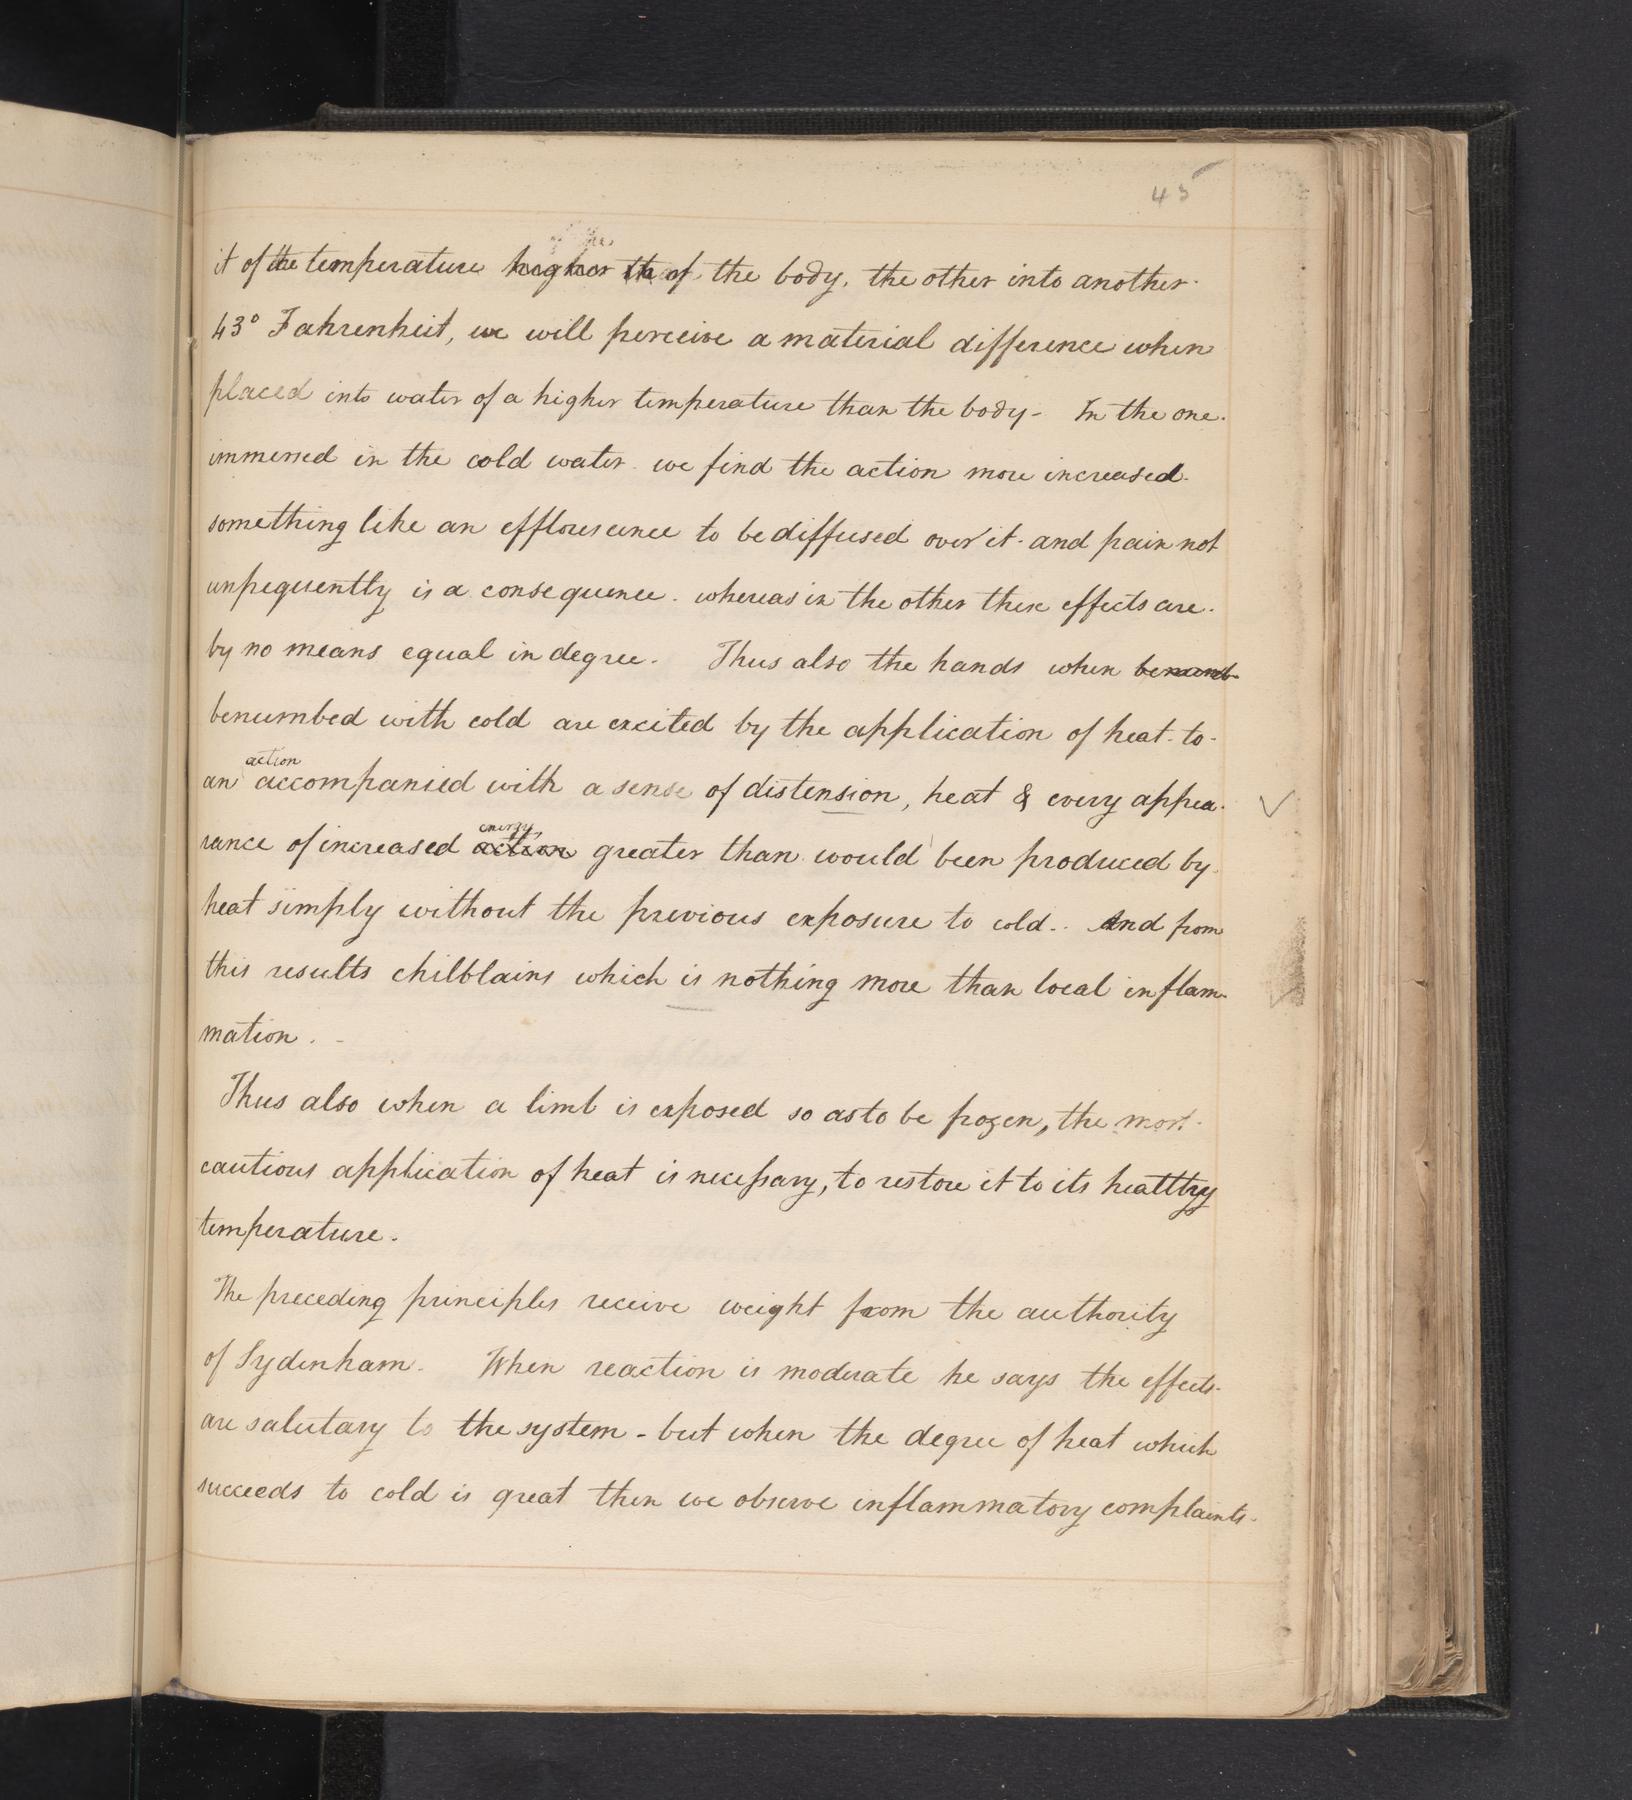 45
it of the temperature higher th of the body. the other into another
43° Fahrenheit, we will perceive a material difference when
placed into water of a higher temperature than the body - In the one.
immersed in the cold water. we find the action more increased.
something like an efflourcence to be diffused over it. and pain not
unfrequently is a consequence. whereas in the other these effects are.
by no means equal in degree. Thus also the hands when benumb
benumbed with cold are excited by the application of heat. to.
action
an accompanied with a sense of distension, heat & every appea-
energy,
rance of increased action greater than would been produced by
heat simply without the previous exposure to cold.. And from
this results chilblains which is nothing more than local inflam-
mation. -
Thus also when a limb is exposed so as to be frozen, the most
cautious application of heat is necessary, to restore it to its healthy
temperature.
The preceding principles receive weight from the authority
of Sydenham. When reaction is moderate he says the effects.
are salutary to the system - but when the degree of heat which
succeeds to cold is great then we observe inflammatory complaints.